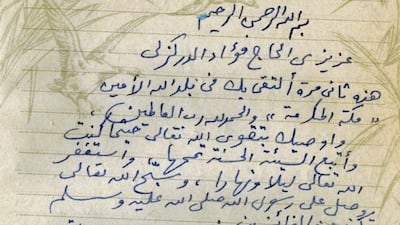 بسم الله الرحمن الرحيم
عزيزي الحاج فؤاد الدركزلي
هذه ثاني مرة ألتقي بك في بلد الله الأمين
"مكة المكرمة"، والحمد لله رب العالمين
وأوصيك بتقوى الله تعالى حيثما كنت
وأتبع السيئة الحسنة تمحها، واستغفر
الله تعالى ليلا ونهارا، وسبح الله تعالى
وصل على رسول الله صلى الله عليه وسلم